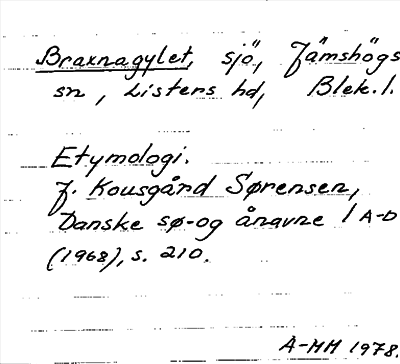 Braxnagylet, sjö, Jämshögs
sn, Listers hd, Blek.l.
Etymologi.
J. Kousgård Sørensen,
Danske sø- og ånavne 1 A-D
(1968), s. 210.
A-MH 1978.